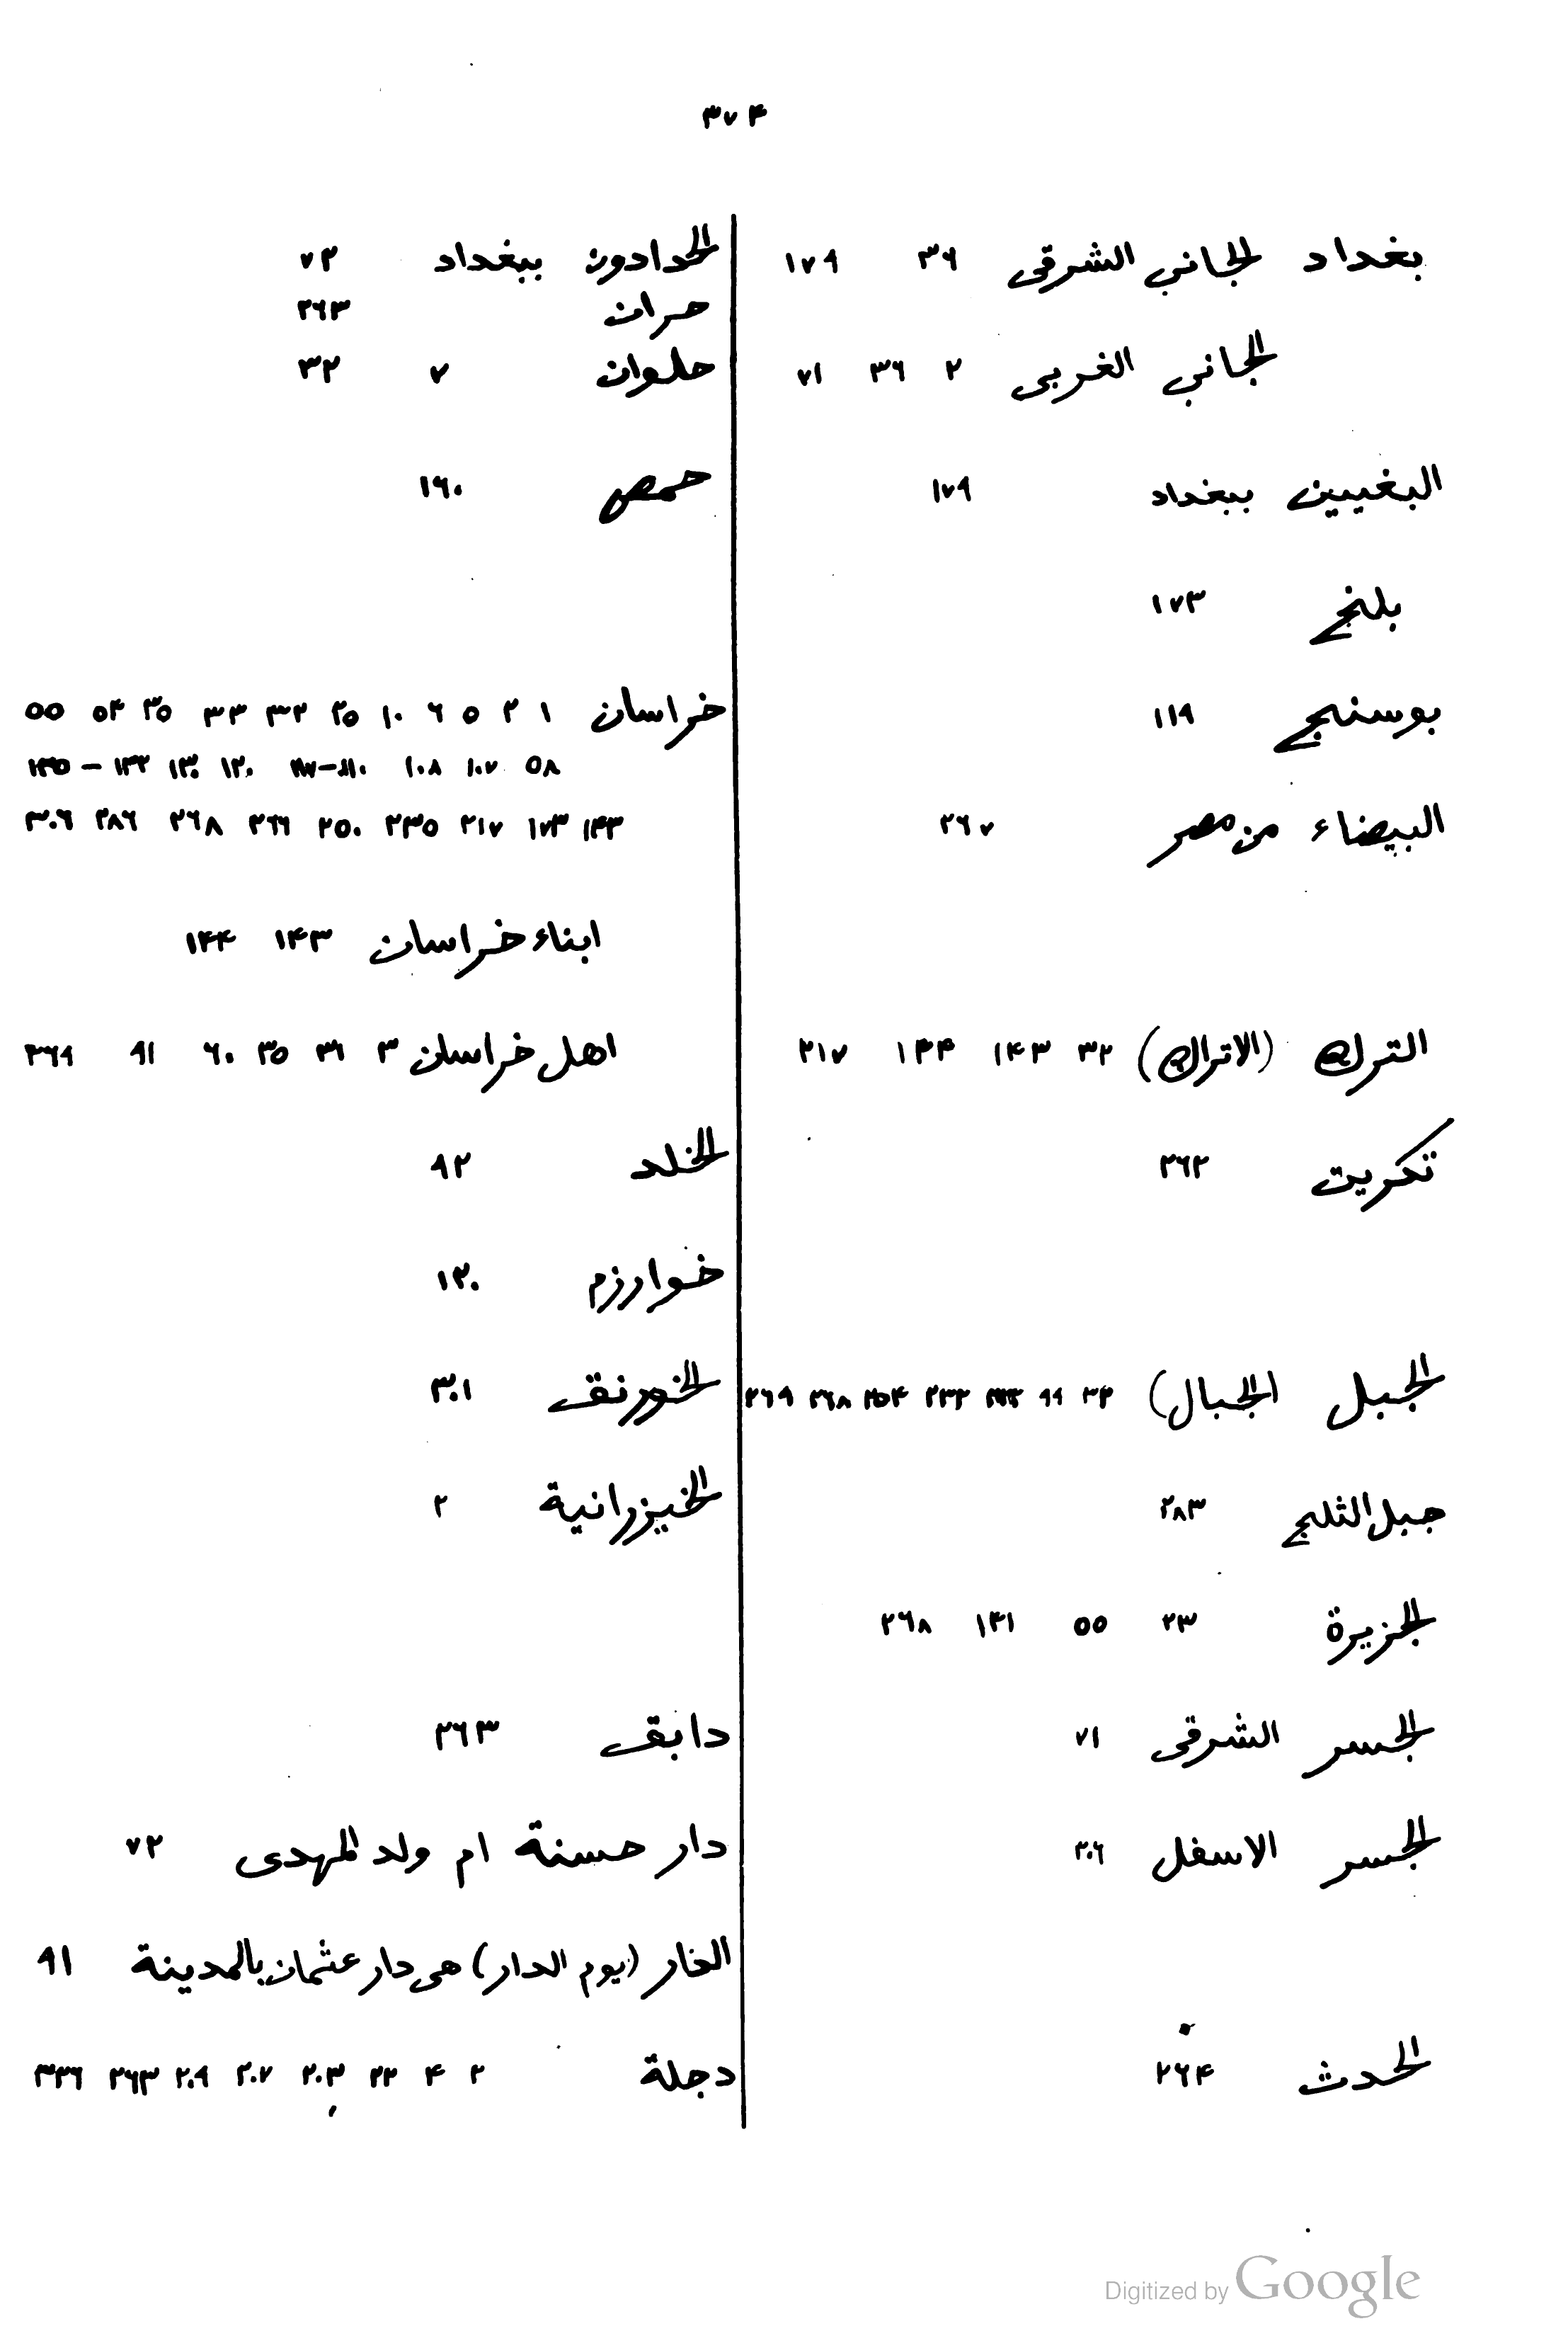 ٣٧٤
بغداد الجانب الشرقى ٣٦ ١٧٩
الجانب الغربى ٢ ٣٦ ٧١
البغيين ببغداد ١٧٩
بلنج ١٧٣
بوسنج ١١٩
البيضاء من مصر ٢٦٧
الترك (الاتراك) ٣٢ ١٤٣ ١٤٤ ٢١٧
تكريت ٢٦٢
الجبل (الجبال) ٣٤ ٩٩ ٢٣٢ ٢٥٤ ٢٦٨ ٢٦٩
جبل الثلج ٢٨٣
الجزيرة ٢٣ ٥٥ ١٤١ ٢٦٨
الجسر الشرقى ٧١
الجسر الاسفل ٣٠٦
الحدث ٢٦٤
الحدادون ببغداد ٧٢
حران ٢٦٣
حلوان ٧ ٣٢
حمص ١٦٠
خراسان ١ ٢ ٥ ٦ ١٠ ٢٥ ٣٢ ٣٣ ٣٥ ٥٤ ٥٥
٥٨ ١٠٧ ١٠٨ ١١٠–١١٧ ١٢٠ ١٣٠ ١٣٢ – ١٣٥
١٤٣ ١٧٣ ٢١٧ ٢٣٥ ٢٥٠ ٢٦٦ ٢٦٨ ٢٨٦ ٣٠٦
ابناء خراسان ١٤٣ ١٤٤
اهل خراسان ٣ ٣٦ ٣٥ ٦٠ ٩١ ٢٦٩
الخلد ٩٢
خوارزم ١٢٠
الخورنق ٣٠١
الخيزرانية ٢
دابق ٢٦٣
دار حسنة ام ولد المهدى ٧٢
الدار (يوم الدار) هى دار عثمان بالمدينة ٩١
دجلة ٢ ٤ ٢٢ ٢٠٣ ٢٠٧ ٢٠٩ ٢٦٣ ٣٣٦
Digitized by Google